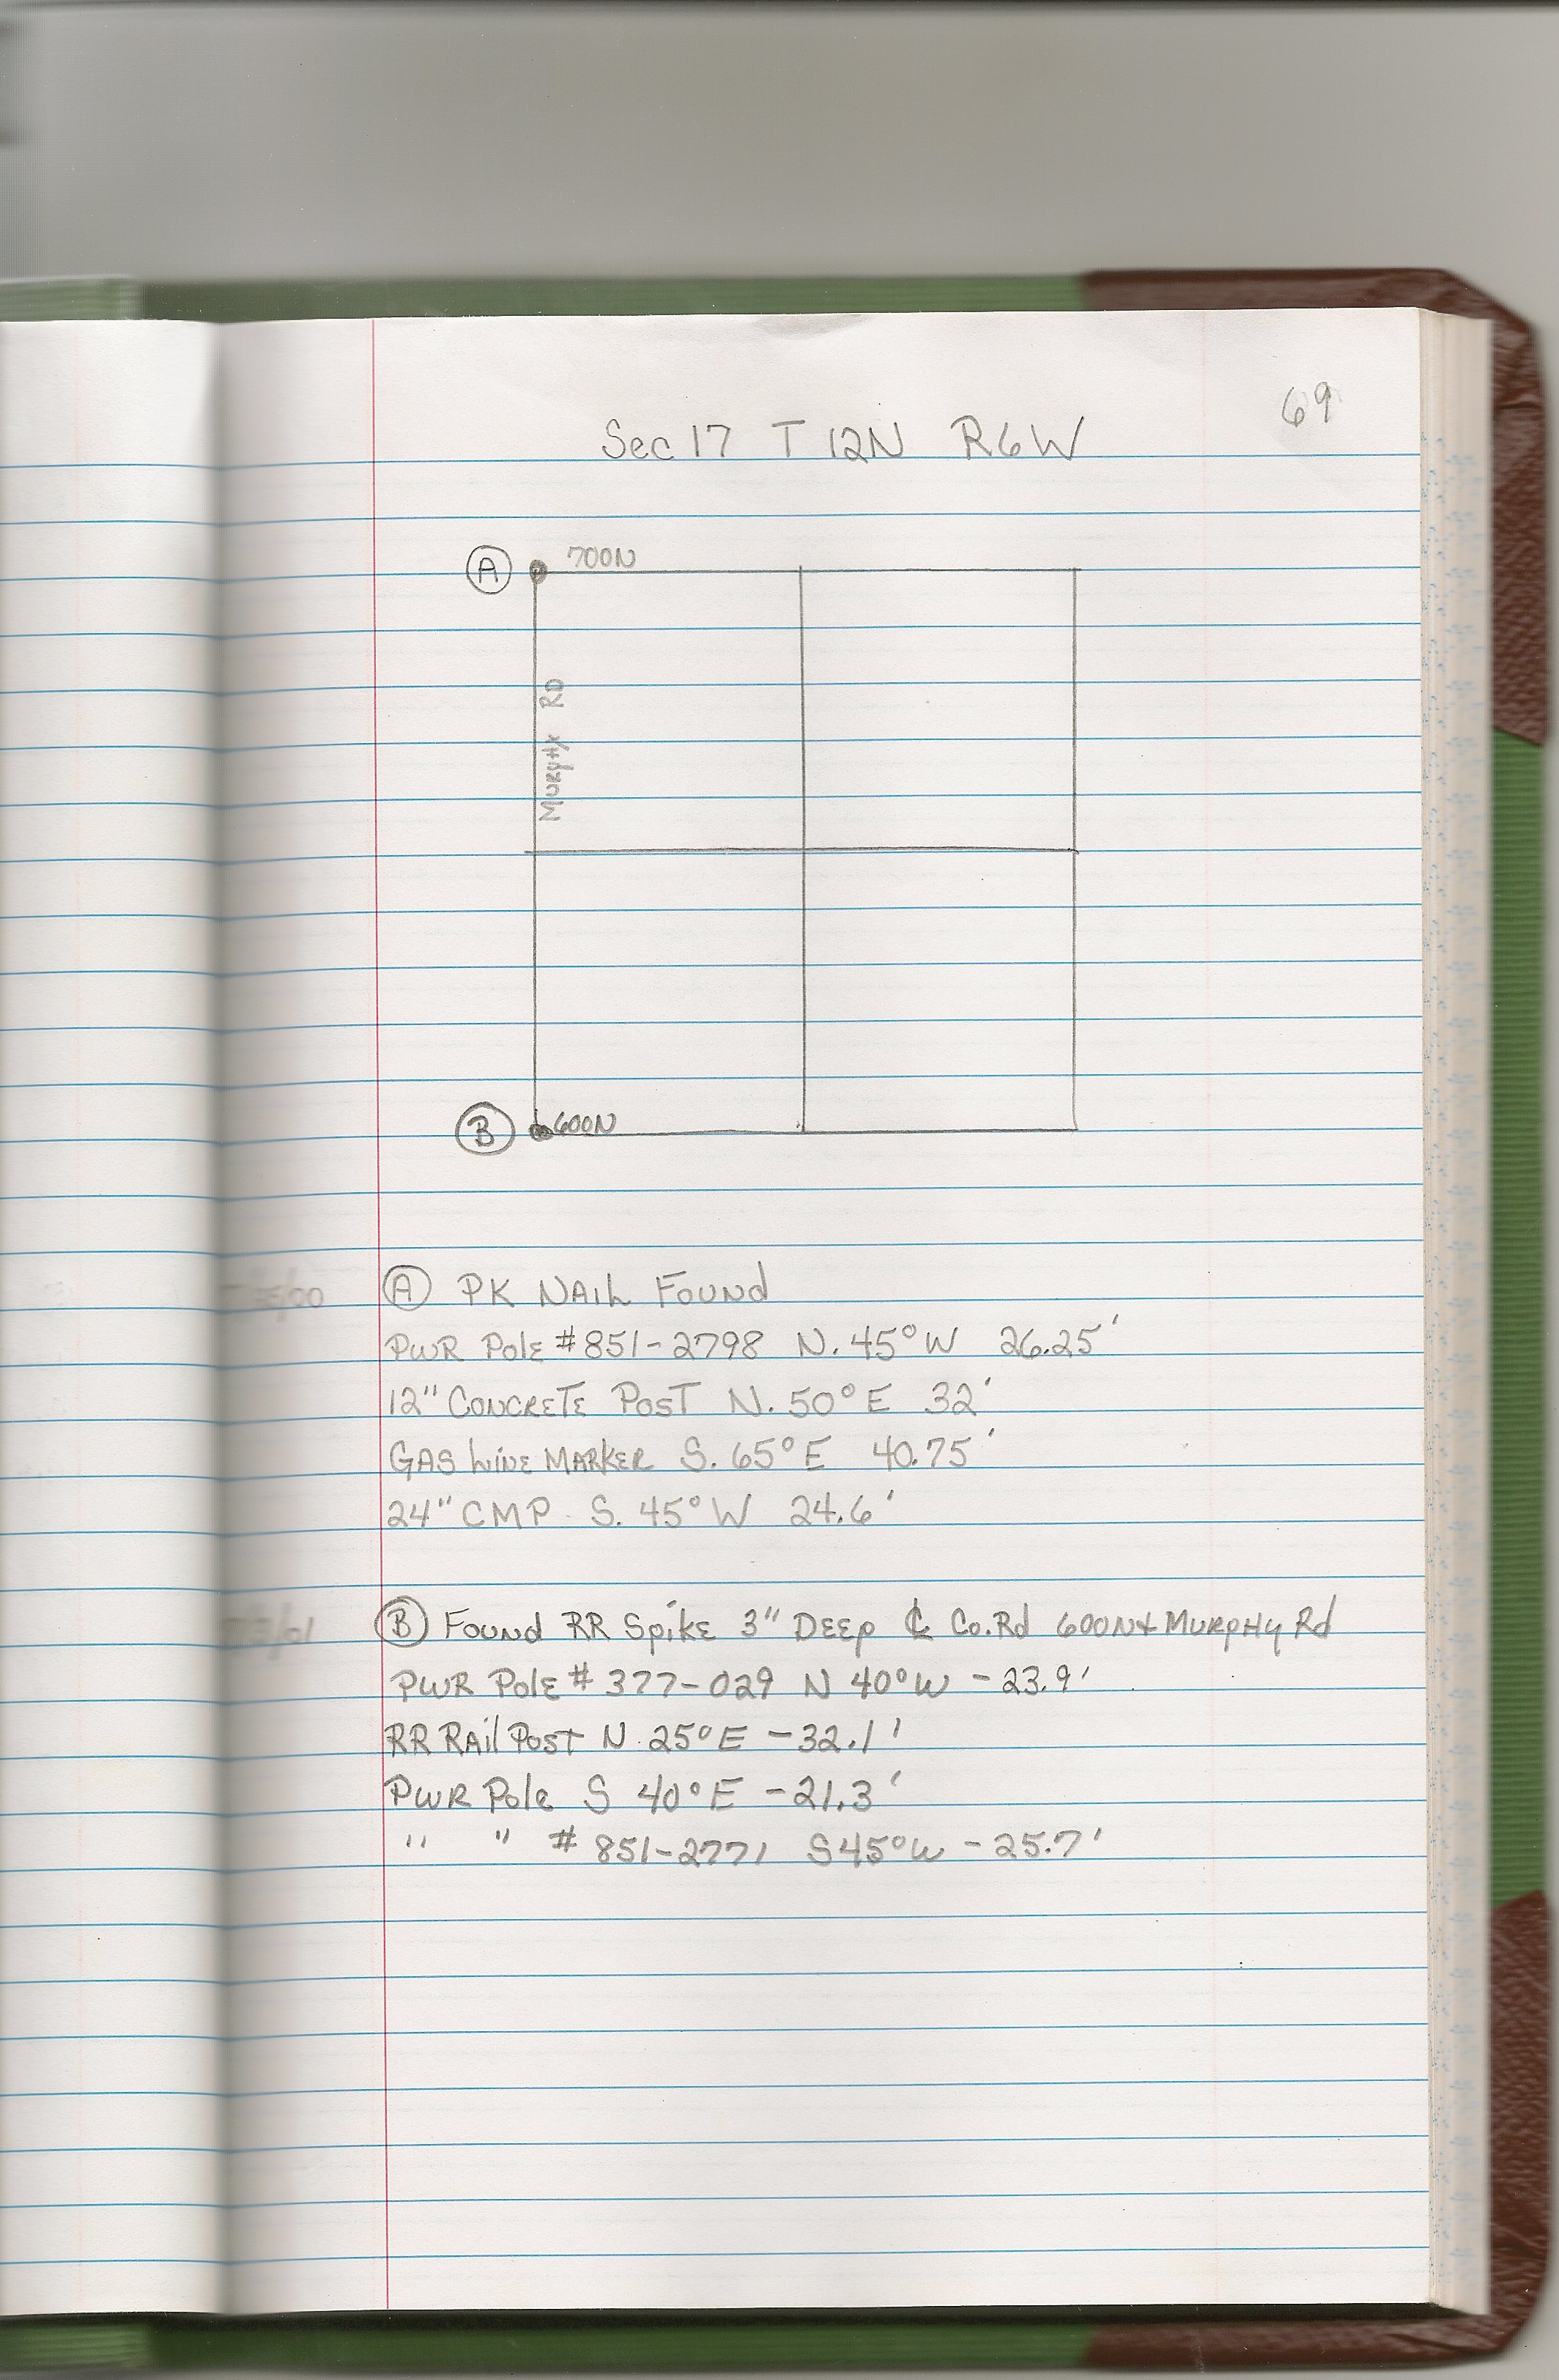 69
Sec 17 T 12N R6W
A 700N
MURPHY RD
B 600N
A PK NAIL FOUND
PWR POLE #851-2798 N. 45°W 26.25'
12" CONCRETE POST N. 50°E 32'
GAS LINE MARKER S. 65°E 40.75'
24" CMP S. 45°W 24.6'
B FOUND RR SPIKE 3" DEEP ℄ Co.Rd 600N & MURPHY Rd
PWR POLE # 377-029 N 40°W -23.9'
RR RAIL POST N 25°E -32.1'
PWR Pole S 40°E -21.3'
" " # 851-2771 S45°W -25.7'